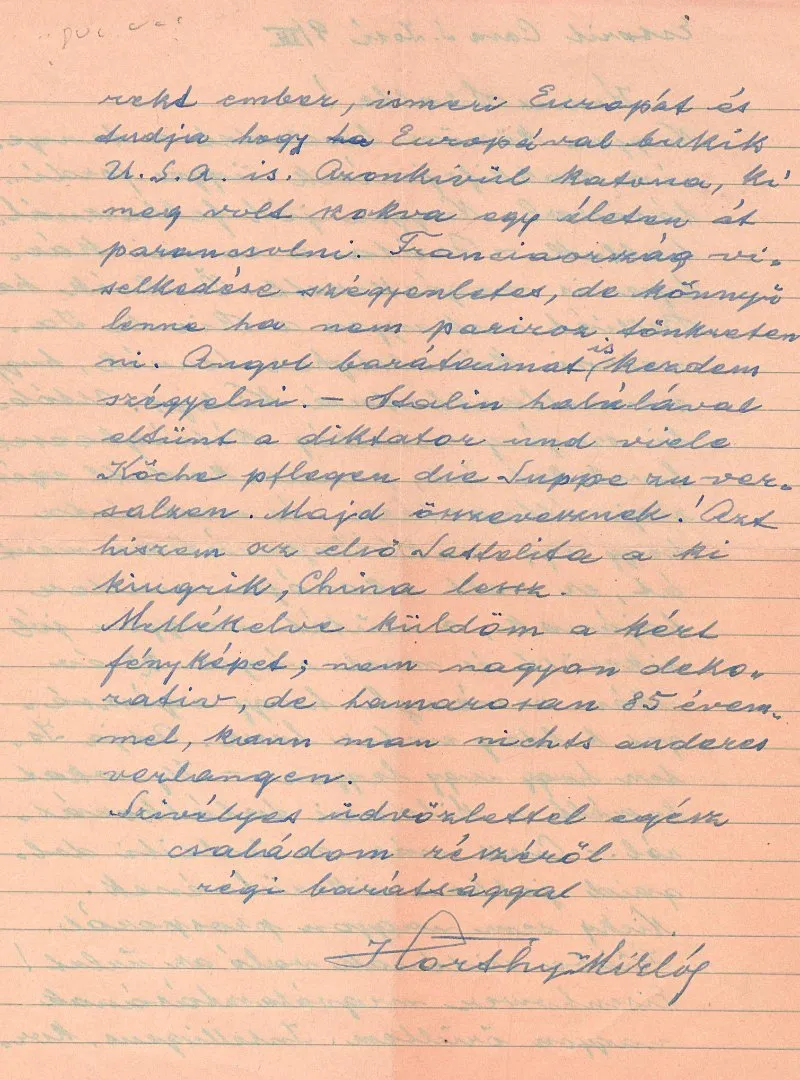 rekt ember, ismeri Europát és
tudja hogy ha Europával bukik
U.S.A. is. Azonkivül katona, ki
meg volt szokva egy életen át
parancsolni. Franciaország vi-
selkedése szégyenletes, de könnyö
lenne ha nem pariroz tönkreten
ni. Angol barátaimat is kezdem
szégyelni. – Stalin halálával
eltünt a diktator und viele
Köche pflegen die Suppe zu ver-
salzen. Majd összevesznek! Azt
hiszem az elsö Sattelita a ki
kiugrik, China lessz.
Mellékelve küldöm a kért
fényképet; nem nagyon deko-
rativ, de hamarosan 85 évem-
mel, kann man nichts anderes
verlangen.
Szivélyes üdvözlettel egész
családom részéröl
régi barátsággal
Horthy Miklós